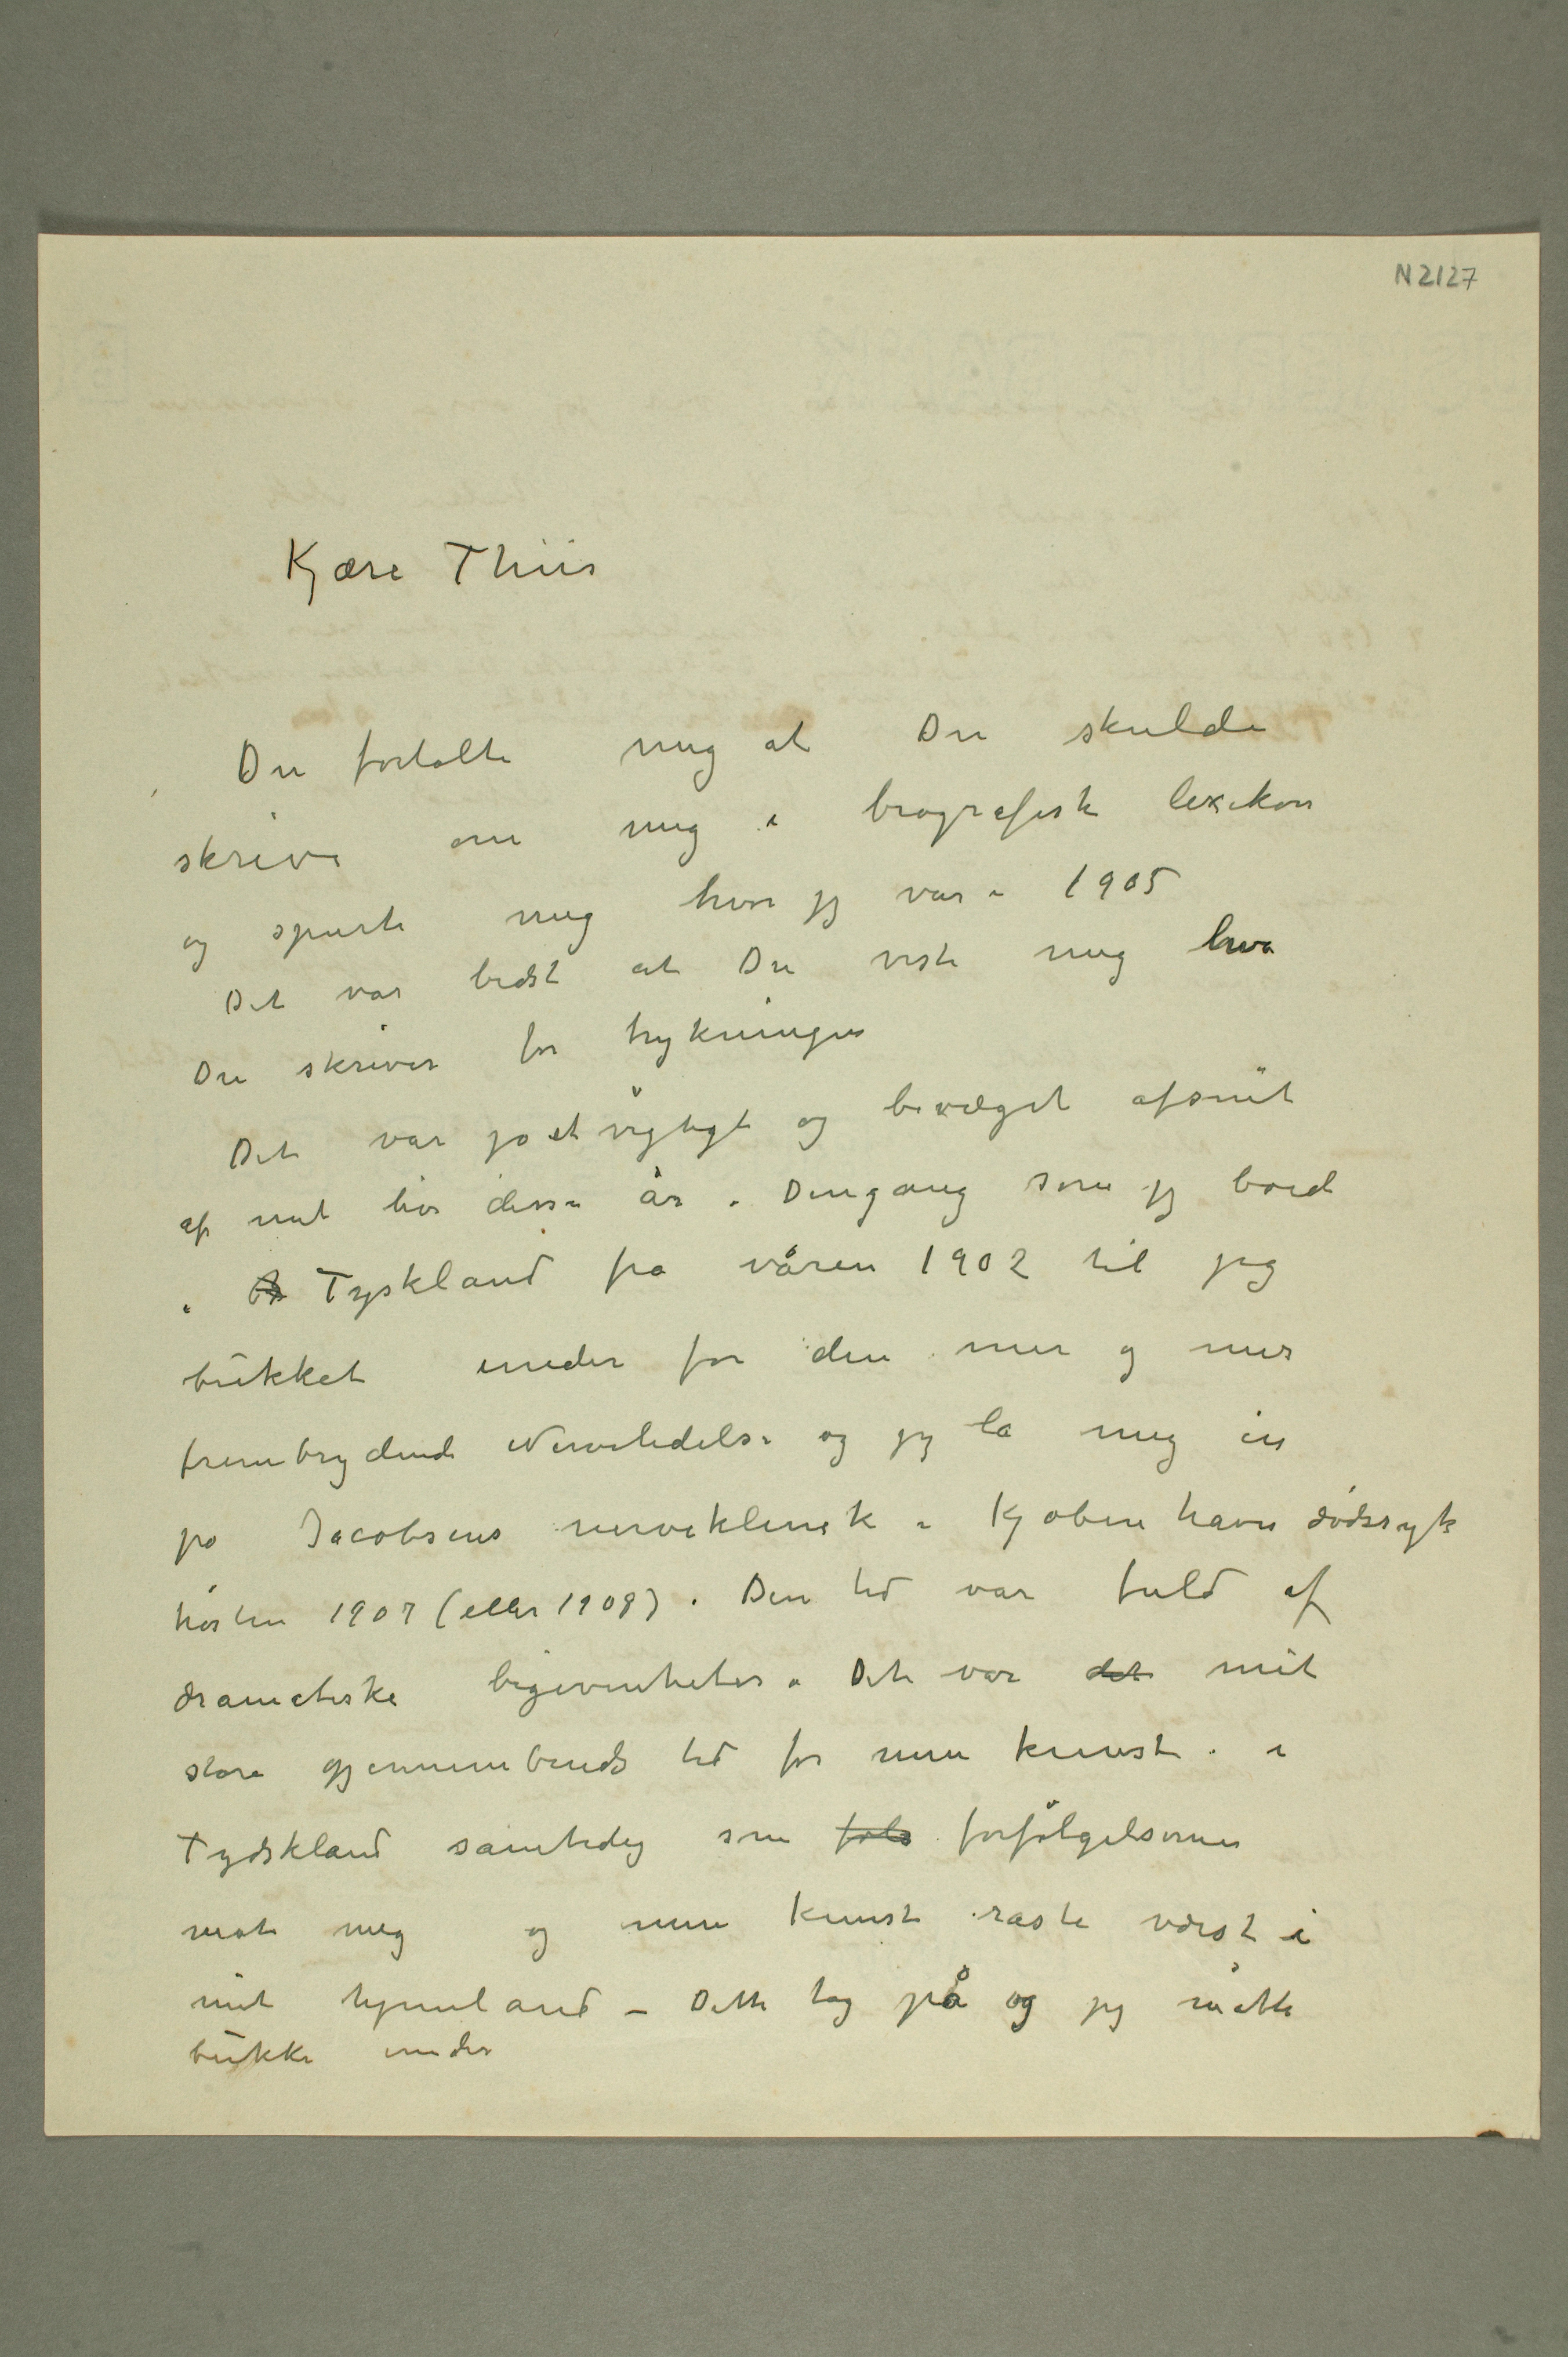 N 2127
Kjære Thiis
Du fortalte mig at Du skulde
skrive om mig i biografisk lexikon
og spurte mig hvor jeg var i 1905
Det var bedst at Du viste mig hva
Du skriver før trykningen
Det var jo et vigtigt og bevæget afsnit
af mit liv disse år. Dengang som jeg boed
i Tyskland fra våren 1902 til jeg
bukket under for den mer og mer
frembrydende Nervelidelse og jeg la mig in
på Jacobsens nerveklinik i Kjøbenhavn dødssyk
høsten 1907 (eller 1908). Den tid var fuld af
dramatiske begivenheter. Det var det mit
store gjennembruds tid for min kunst i
Tydskland samtidig som føls forfølgelserne
mot mig og min kunst raste værst i
mit hjemland – Dette tog på og jeg måtte
bukke under